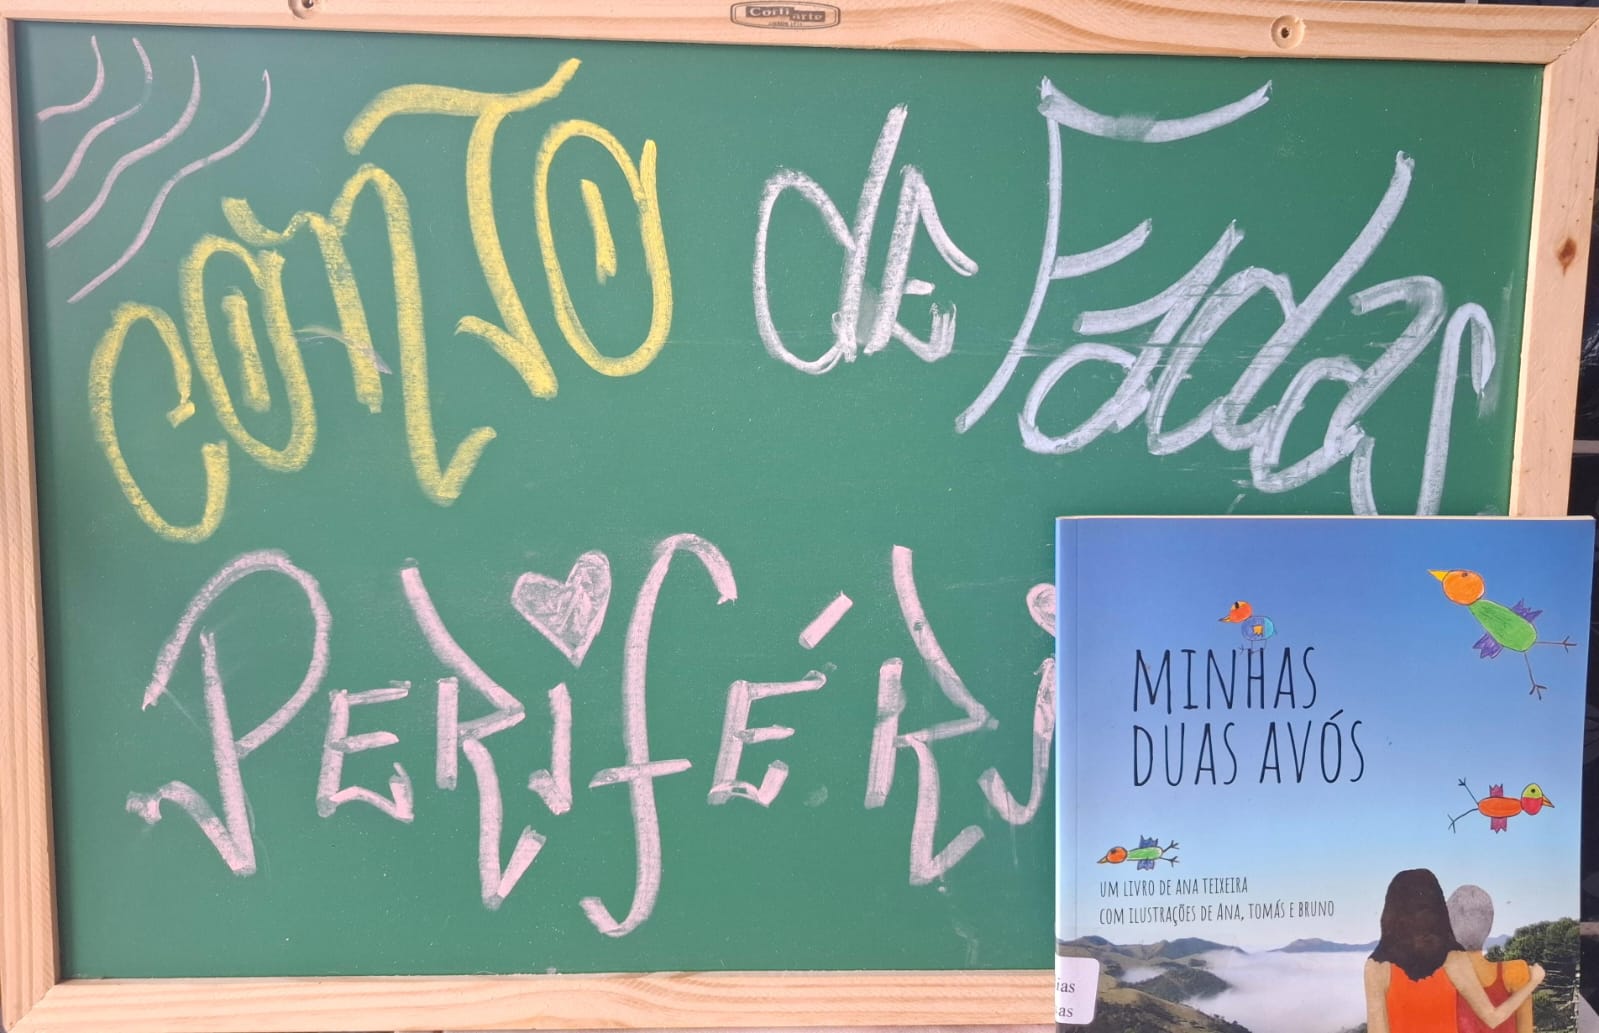 Corti arte
CONTO de Fadas
PERIFÉRI
MINHAS
DUAS AVÓS
UM LIVRO DE ANA TEIXEIRA
COM ILUSTRAÇÕES DE ANA, TOMÁS E BRUNO
ias
as